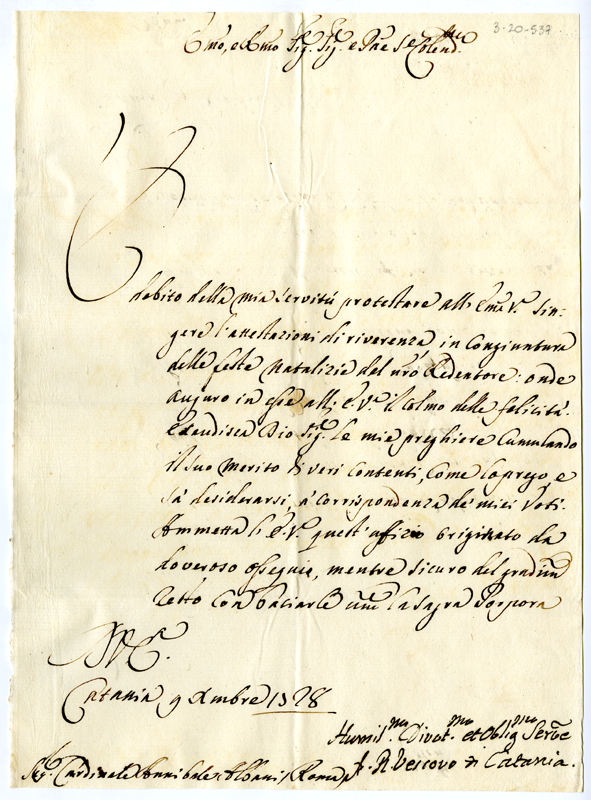 3-20-537
Emo, e Rmo Sig.r Sig.r e Pne Se Colend.mo
È
debito della mia servitù protestare all' Emã V.a sin-
gere l'attestazioni di riverenza in congiuntura
delle feste natalizie del nr̃o Redentore: onde
auguro in esse all' E.V.a il colmo delle felicità.
Esaudisca Dio Sig.re le mie preghiere cumulando
il suo merito di veri contenti, come lo prego, e
sà desiderarsi, à corrispondenza de' miei voti.
Ammetta l' E.V.a quest' uffizio originato da
doveroso ossequio, mentre sicuro del gradim̃
resto con baciarle um̃e la sagra Porpora
D V E.
Catania 9 Xmbre 1728
Humil.mo Divot.mo et Oblig.mo Servẽ
f. R Vescovo di Catania.
Sig. Cardinale Annibale Albani / Roma